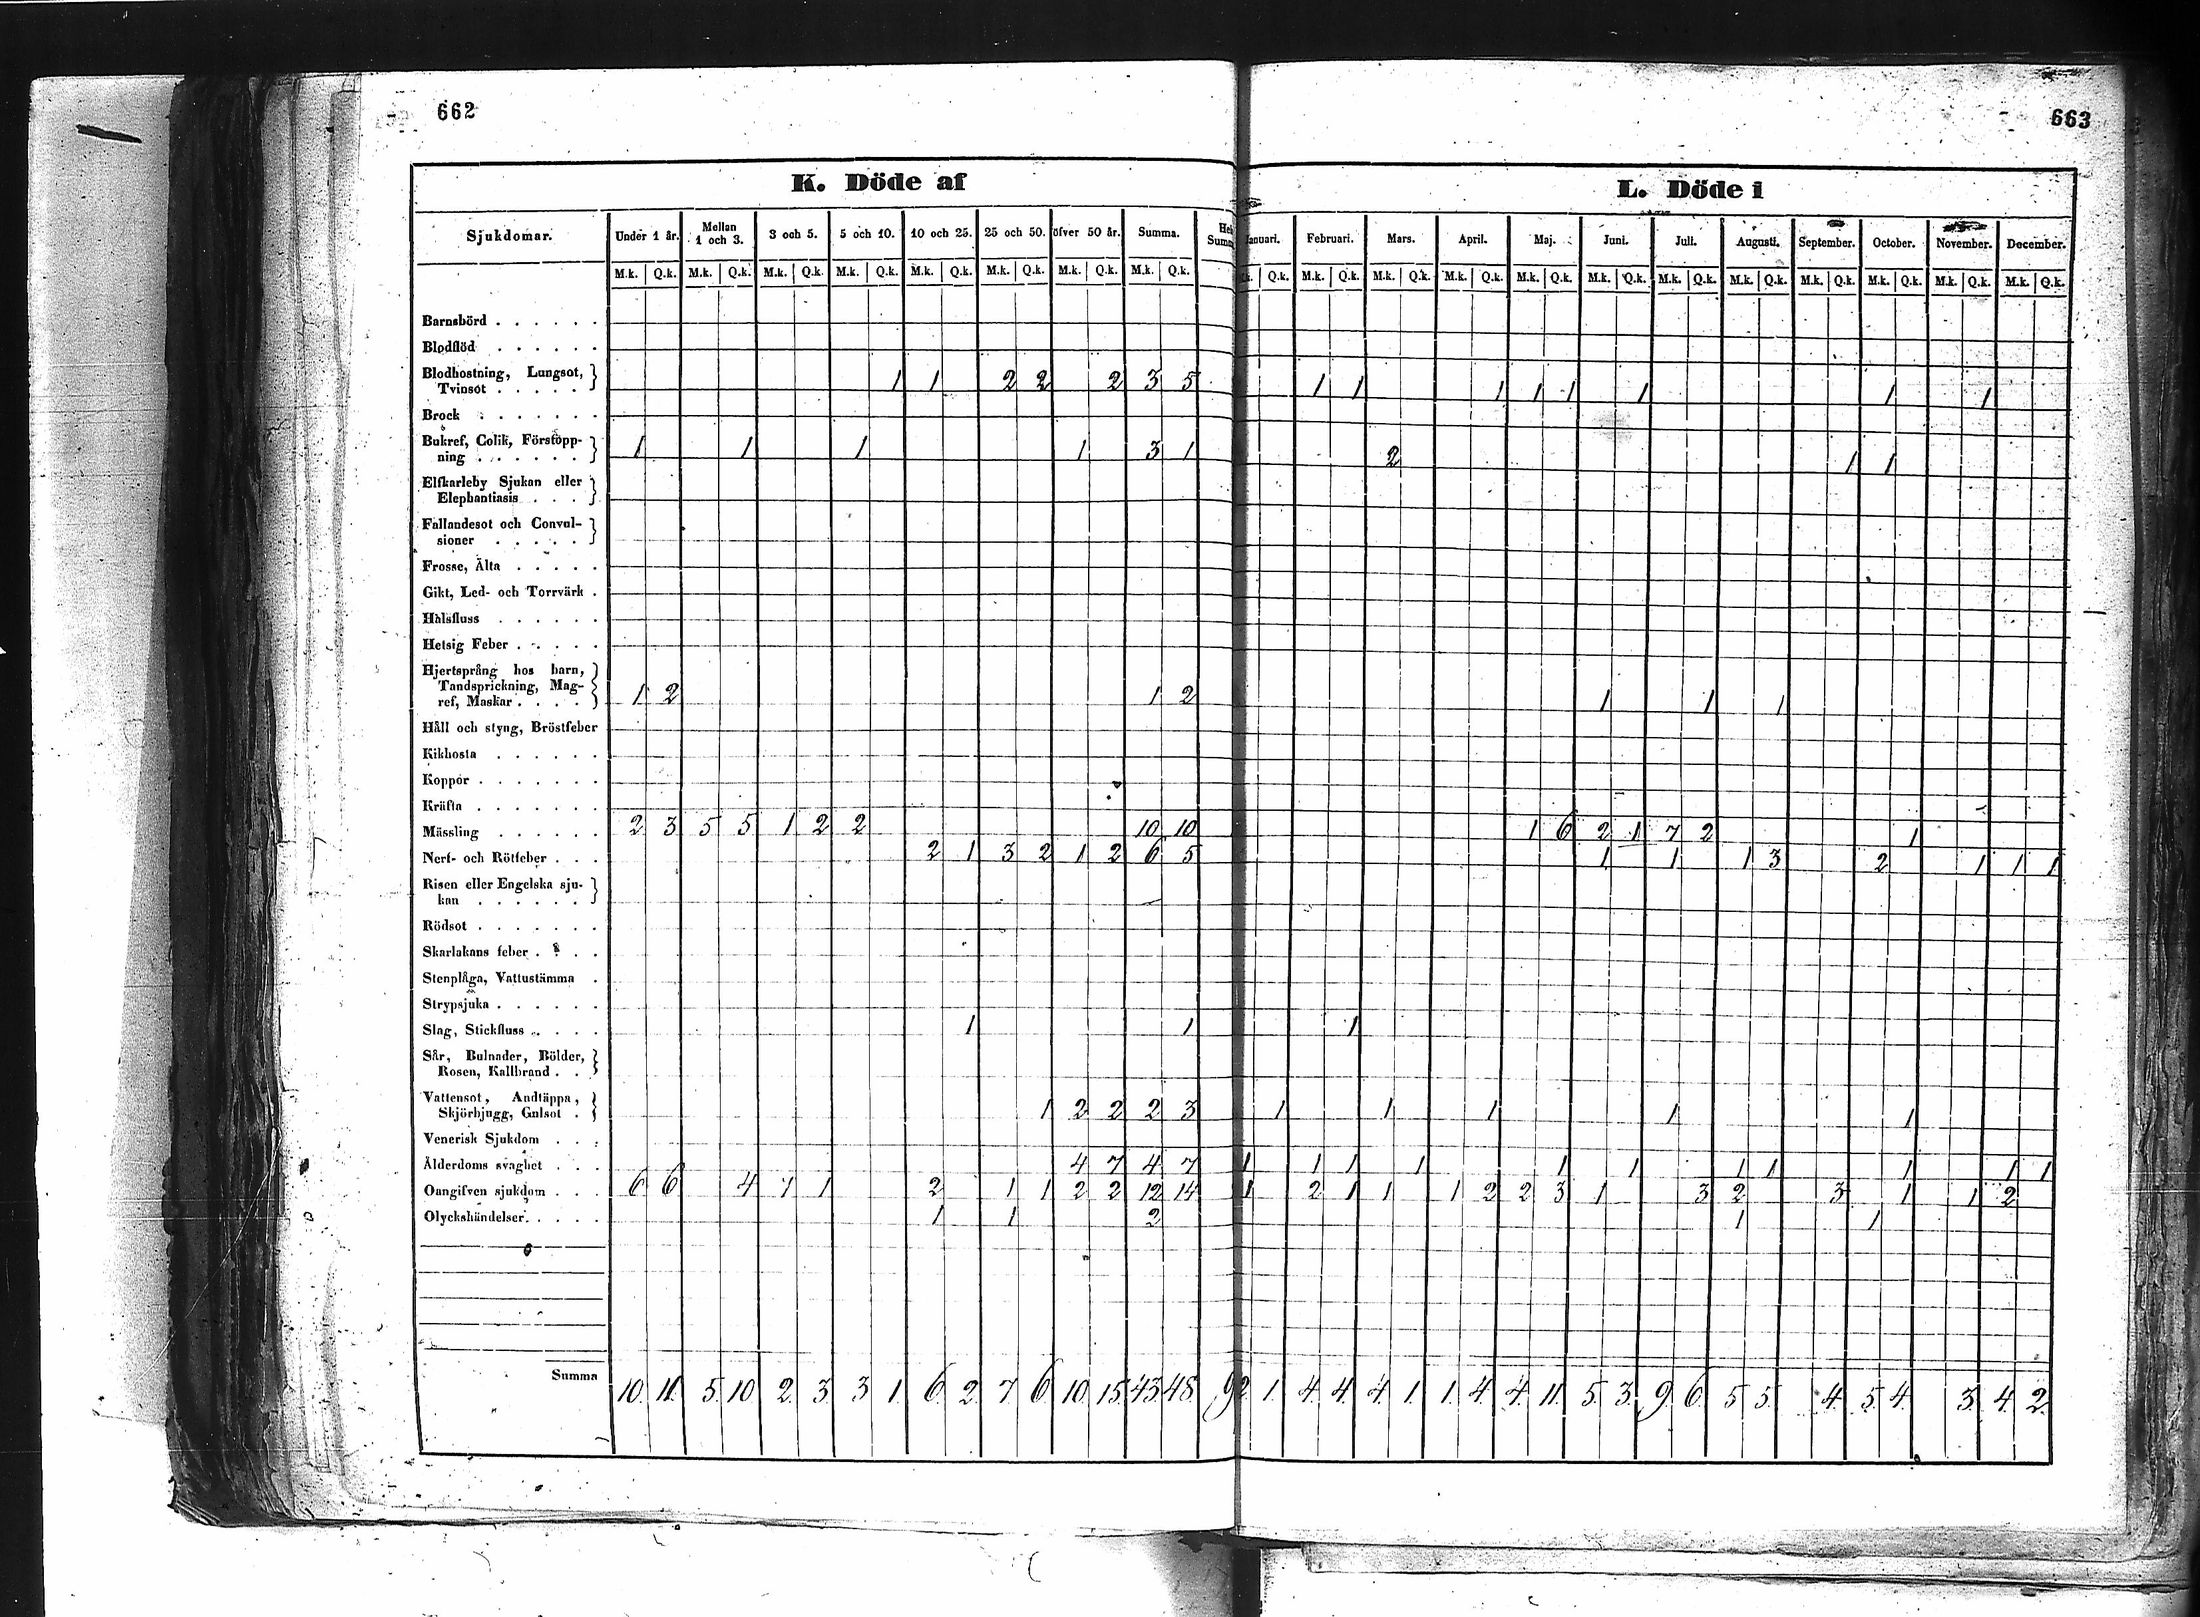 662
663
K. Döde af
L. Döde i
Sjukdomar. Under 1 år. Mellan 1 och 3. 3 och 5. 5 och 10. 10 och 25. 25 och 50. öfver 50 år. Summa. Summ
anuari. Februari. Mars. April. Maj. Juni. Juli. Augusti. September. October. November. December.
M.k. Q.k. M.k. Q.k. M.k. Q.k. M.k. Q.k. M.k. Q.k. M.k. Q.k. M.k. Q.k. M.k. Q.k.
Q.k. M.k. Q.k. M.k. Q.k. M.k. Q.k. M.k. Q.k. M.k. Q.k. M.k. Q.k. M.k. Q.k. M.k. Q.k. M.k. Q.k. M.k. Q.k. M.k. Q.k.
Barnsbörd . . . . . .
Blodflöd . . . . . .
Blodhostning, Lungsot,
Tvinsot . . . . . 1 1 2 2 2 3 5 1 1 1 1 1 1 1 1
Brock . . . . . . .
Bukref, Colik, Förstopp-
ning . . . . . . 1 1 1 1 3 1 2 1 1
Elfkarleby Sjukan eller
Elephantiasis . . .
Fallandesot och Convul-
sioner . . . . .
Frosse, Älta . . . . .
Gikt, Led- och Torrvärk .
Halsfluss . . . . . .
Hetsig Feber . . . . .
Hjertsprång hos barn,
Tandsprickning, Mag-
ref, Maskar . . . . 1 2 1 2 1 1 1
Håll och styng, Bröstfeber
Kikhosta . . . . . .
Koppor . . . . . . .
Kräfta . . . . . . .
Mässling . . . . . . 2 3 5 5 1 2 2 10 10 1 6 2 1 7 2 1
Nerf- och Rötfeber . . . 2 1 3 2 1 2 6 5 1 1 1 3 2 1 1 1
Risen eller Engelska sju-
kan . . . . . .
Rödsot . . . . . . .
Skarlakans feber . . . .
Stenplåga, Vattustämma .
Strypsjuka . . . . . .
Slag, Stickfluss . . . . 1 1 1
Sår, Bulnader, Bölder,
Rosen, Kallbrand . . .
Vattensot, Andtäppa,
Skjörbjugg, Gulsot . 1 2 2 2 3 1 1 1 1 1
Venerisk Sjukdom . . .
Ålderdoms svaghet . . . 4 7 4 7 1 1 1 1 1 1 1 1 1 1 1
Oangifven sjukdom . . . 6 6 4 1 1 2 1 1 2 2 12 14 1 2 1 1 1 2 2 3 1 3 2 3 1 1 2
Olyckshändelser . . . . . 1 1 2 1 1
Summa 10. 11. 5. 10 2. 3. 3 1. 6. 2. 7. 6. 10. 15. 43. 48. 9 2. 1. 4. 4. 4. 1. 1. 4. 4. 11. 5. 3. 9. 6. 5. 5. 4. 5. 4. 3. 4. 2.